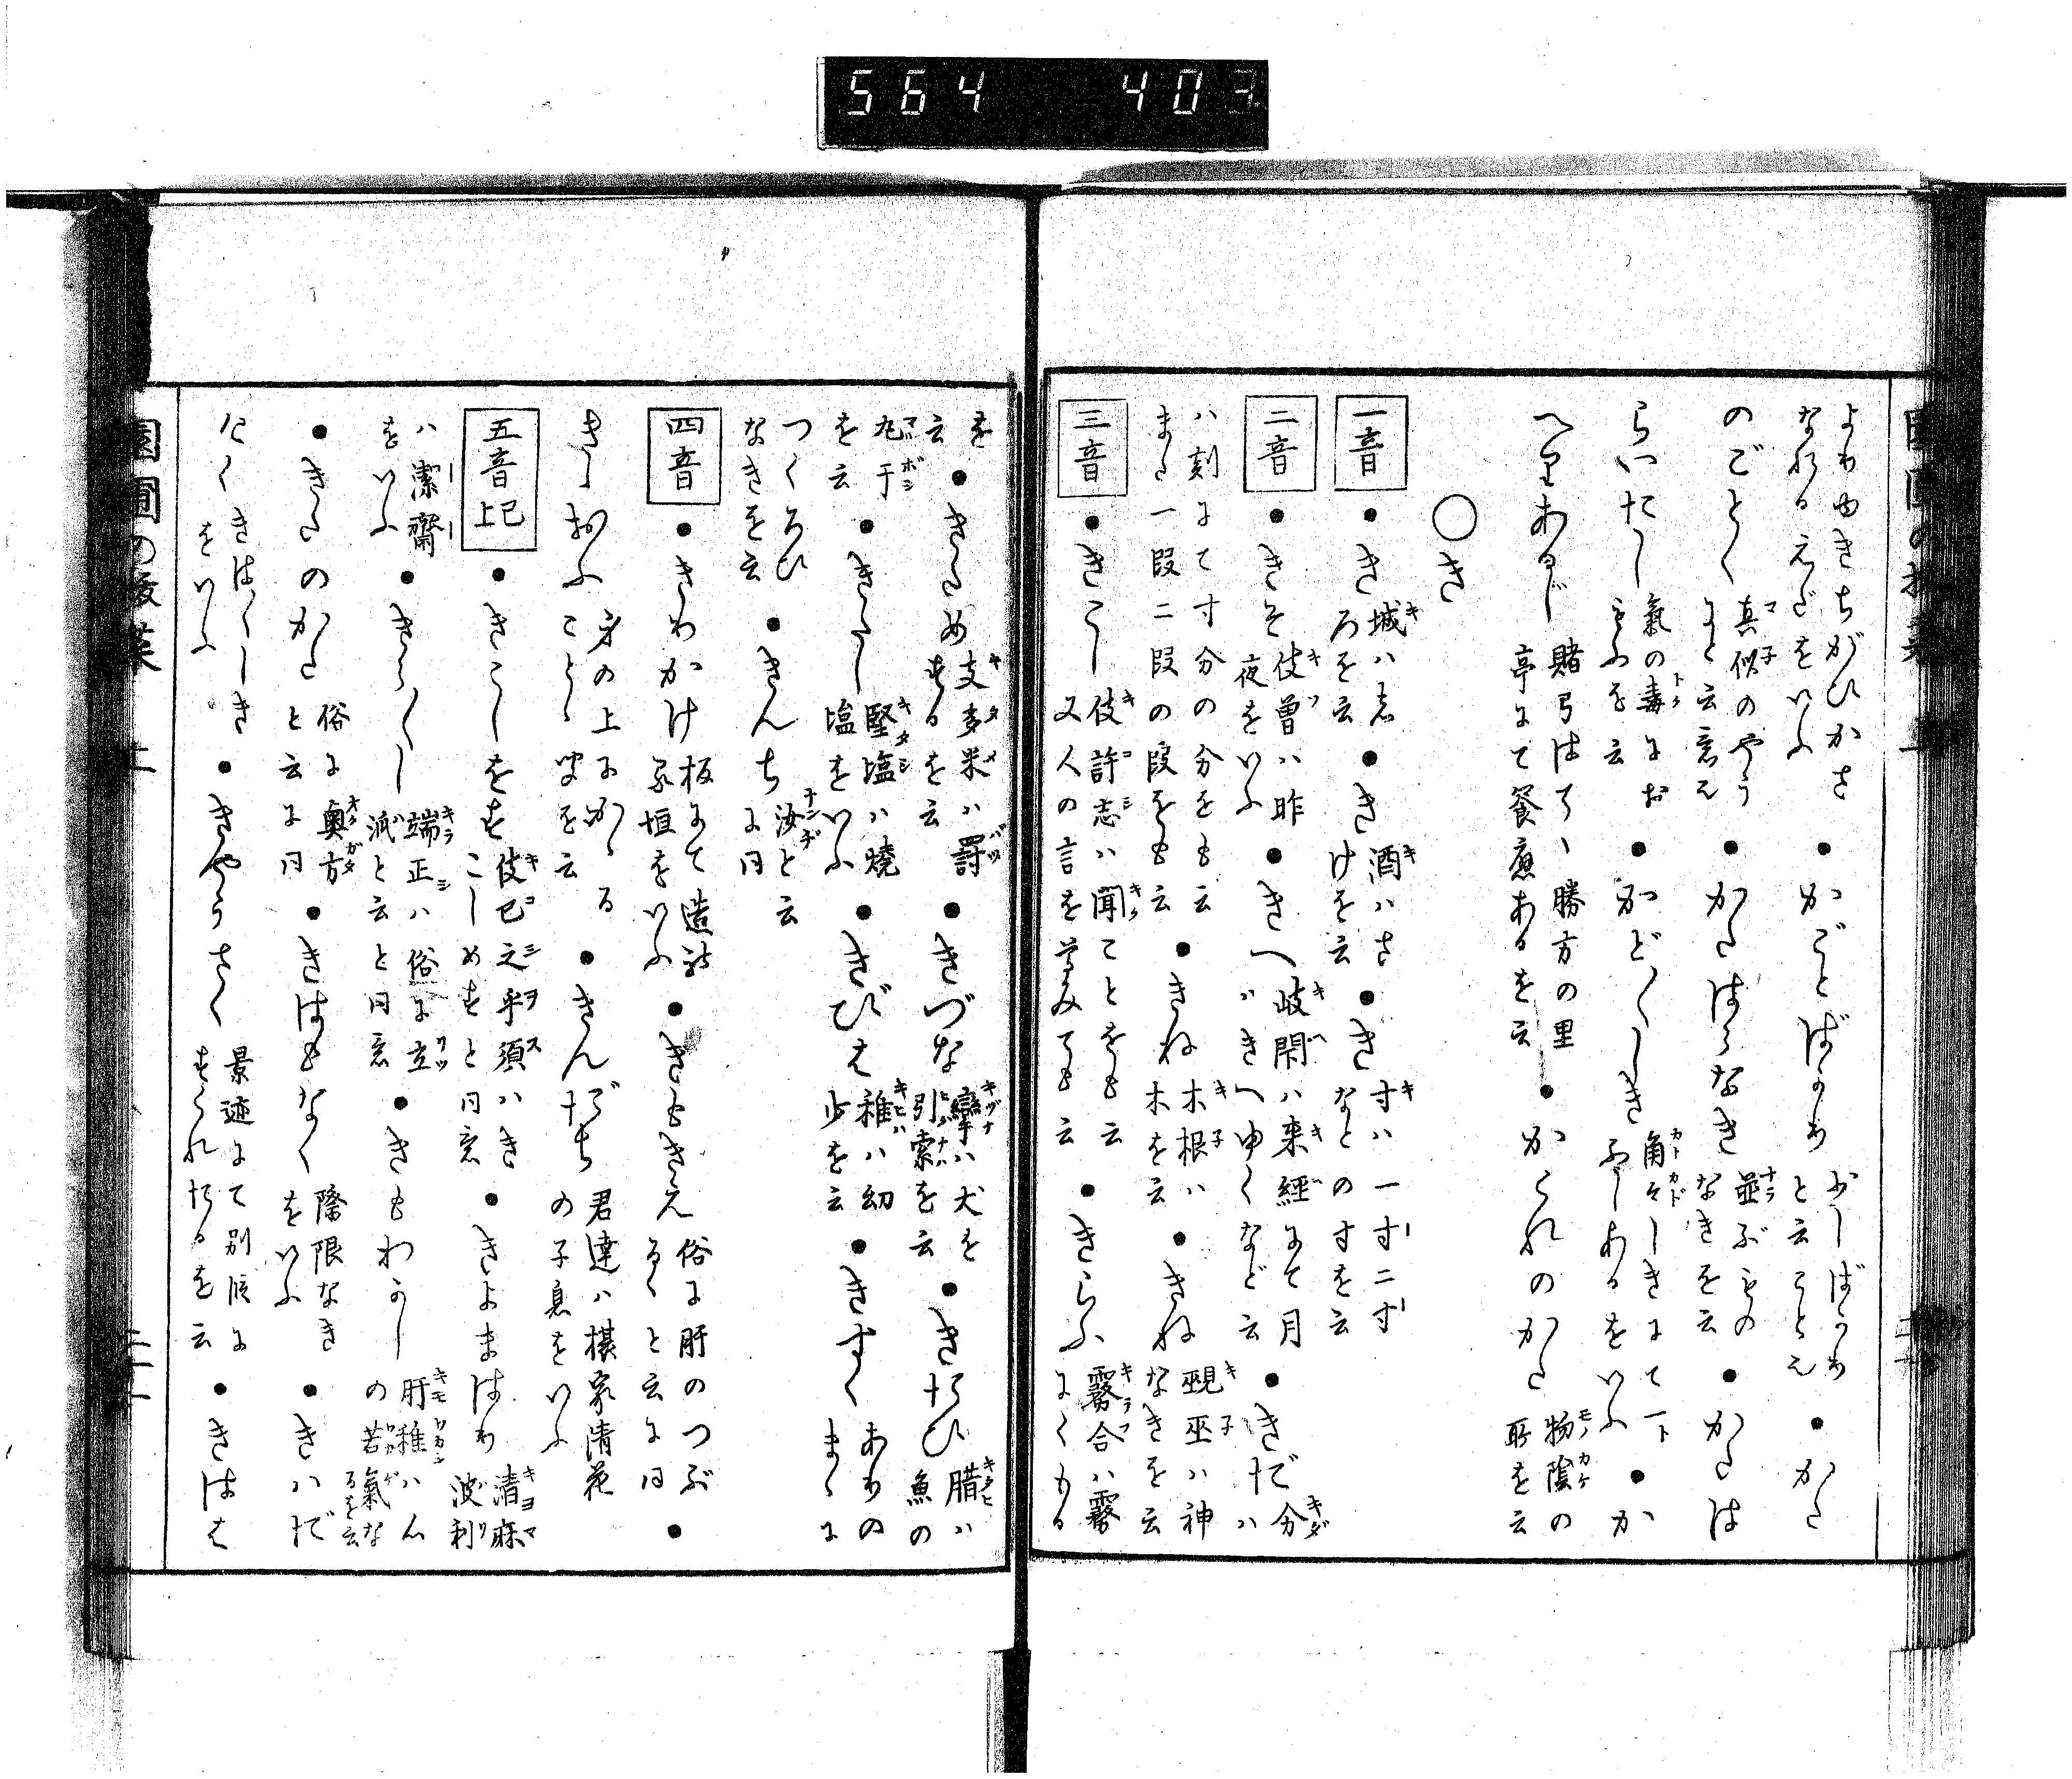 564 403
よわゆきちがひかさ
なれるえだをいふ
●かごとばかり
少しばかり
と云ことえ
●かた
のごとく
真似のやう
にと云意え
●かたはらなき
並ぶもの
なきを云
●かたは
らいたし
氣の毒にお
もふを云
●かどかどしき
角々しきにて一ト
ふしあるをいふ
●か
へりあるじ
賭弓はてゝ勝方の里
亭にて饗應あるを云
●かくれのかた
物陰の
所を云
○き
一音
●き
城ハしろを云
●き
酒ハさけを云
●き
寸ハ一寸二寸
なとの寸を云
二音
●きそ
伎曽ハ昨
夜をいふ
●きへ
岐閇ハ来経にて月
ハきへゆくなど云
●きだ
分ハ
ハ刻にて寸分の分をも云
また一段二段の段をも云
●きね
木根ハ
木を云
●きね
覡巫ハ神
なきを云
三音
●きこし
伎許志ハ聞ことをも云
又人の言を尊みても云
●きらふ
霧合ハ霧
にくもる
を
云
●きため
支多米ハ罸
するを云
●きづな
攣ハ犬を
引索を云
●きたひ
腊ハ
魚の
丸干
を云
●きたし
堅塩ハ焼
塩をいふ
●きびは
稚ハ幼
少を云
●きすく
ありの
まゝに
つくろひ
なきを云
●きんち
汝と云
に同
四音
●きりかけ
板にて造れ
る垣をいふ
●きもきえ
俗に肝のつぶ
るゝと云に同
●
きしおふ
身の上にかゝる
ことゝ定を云
●きんだち
君達ハ棋家清花
の子息をいふ
五音上巳
●きこしをす
伎巳之乎須ハき
こしめすと同意
●きよまはり
清麻
波利
ハ潔齋
をいふ
●きらきらし
端正ハ俗に立
派と云と同意
●きもわかし
肝稚ハ心
の若氣な
るを云
●きたのかた
俗に奥方
と云に同
●きはもなく
際限なき
をいふ
●きハだ
たく
きはゝしき
をいふ
●きやうさく
景迹にて別段に
すぐれたるを云
●きはを